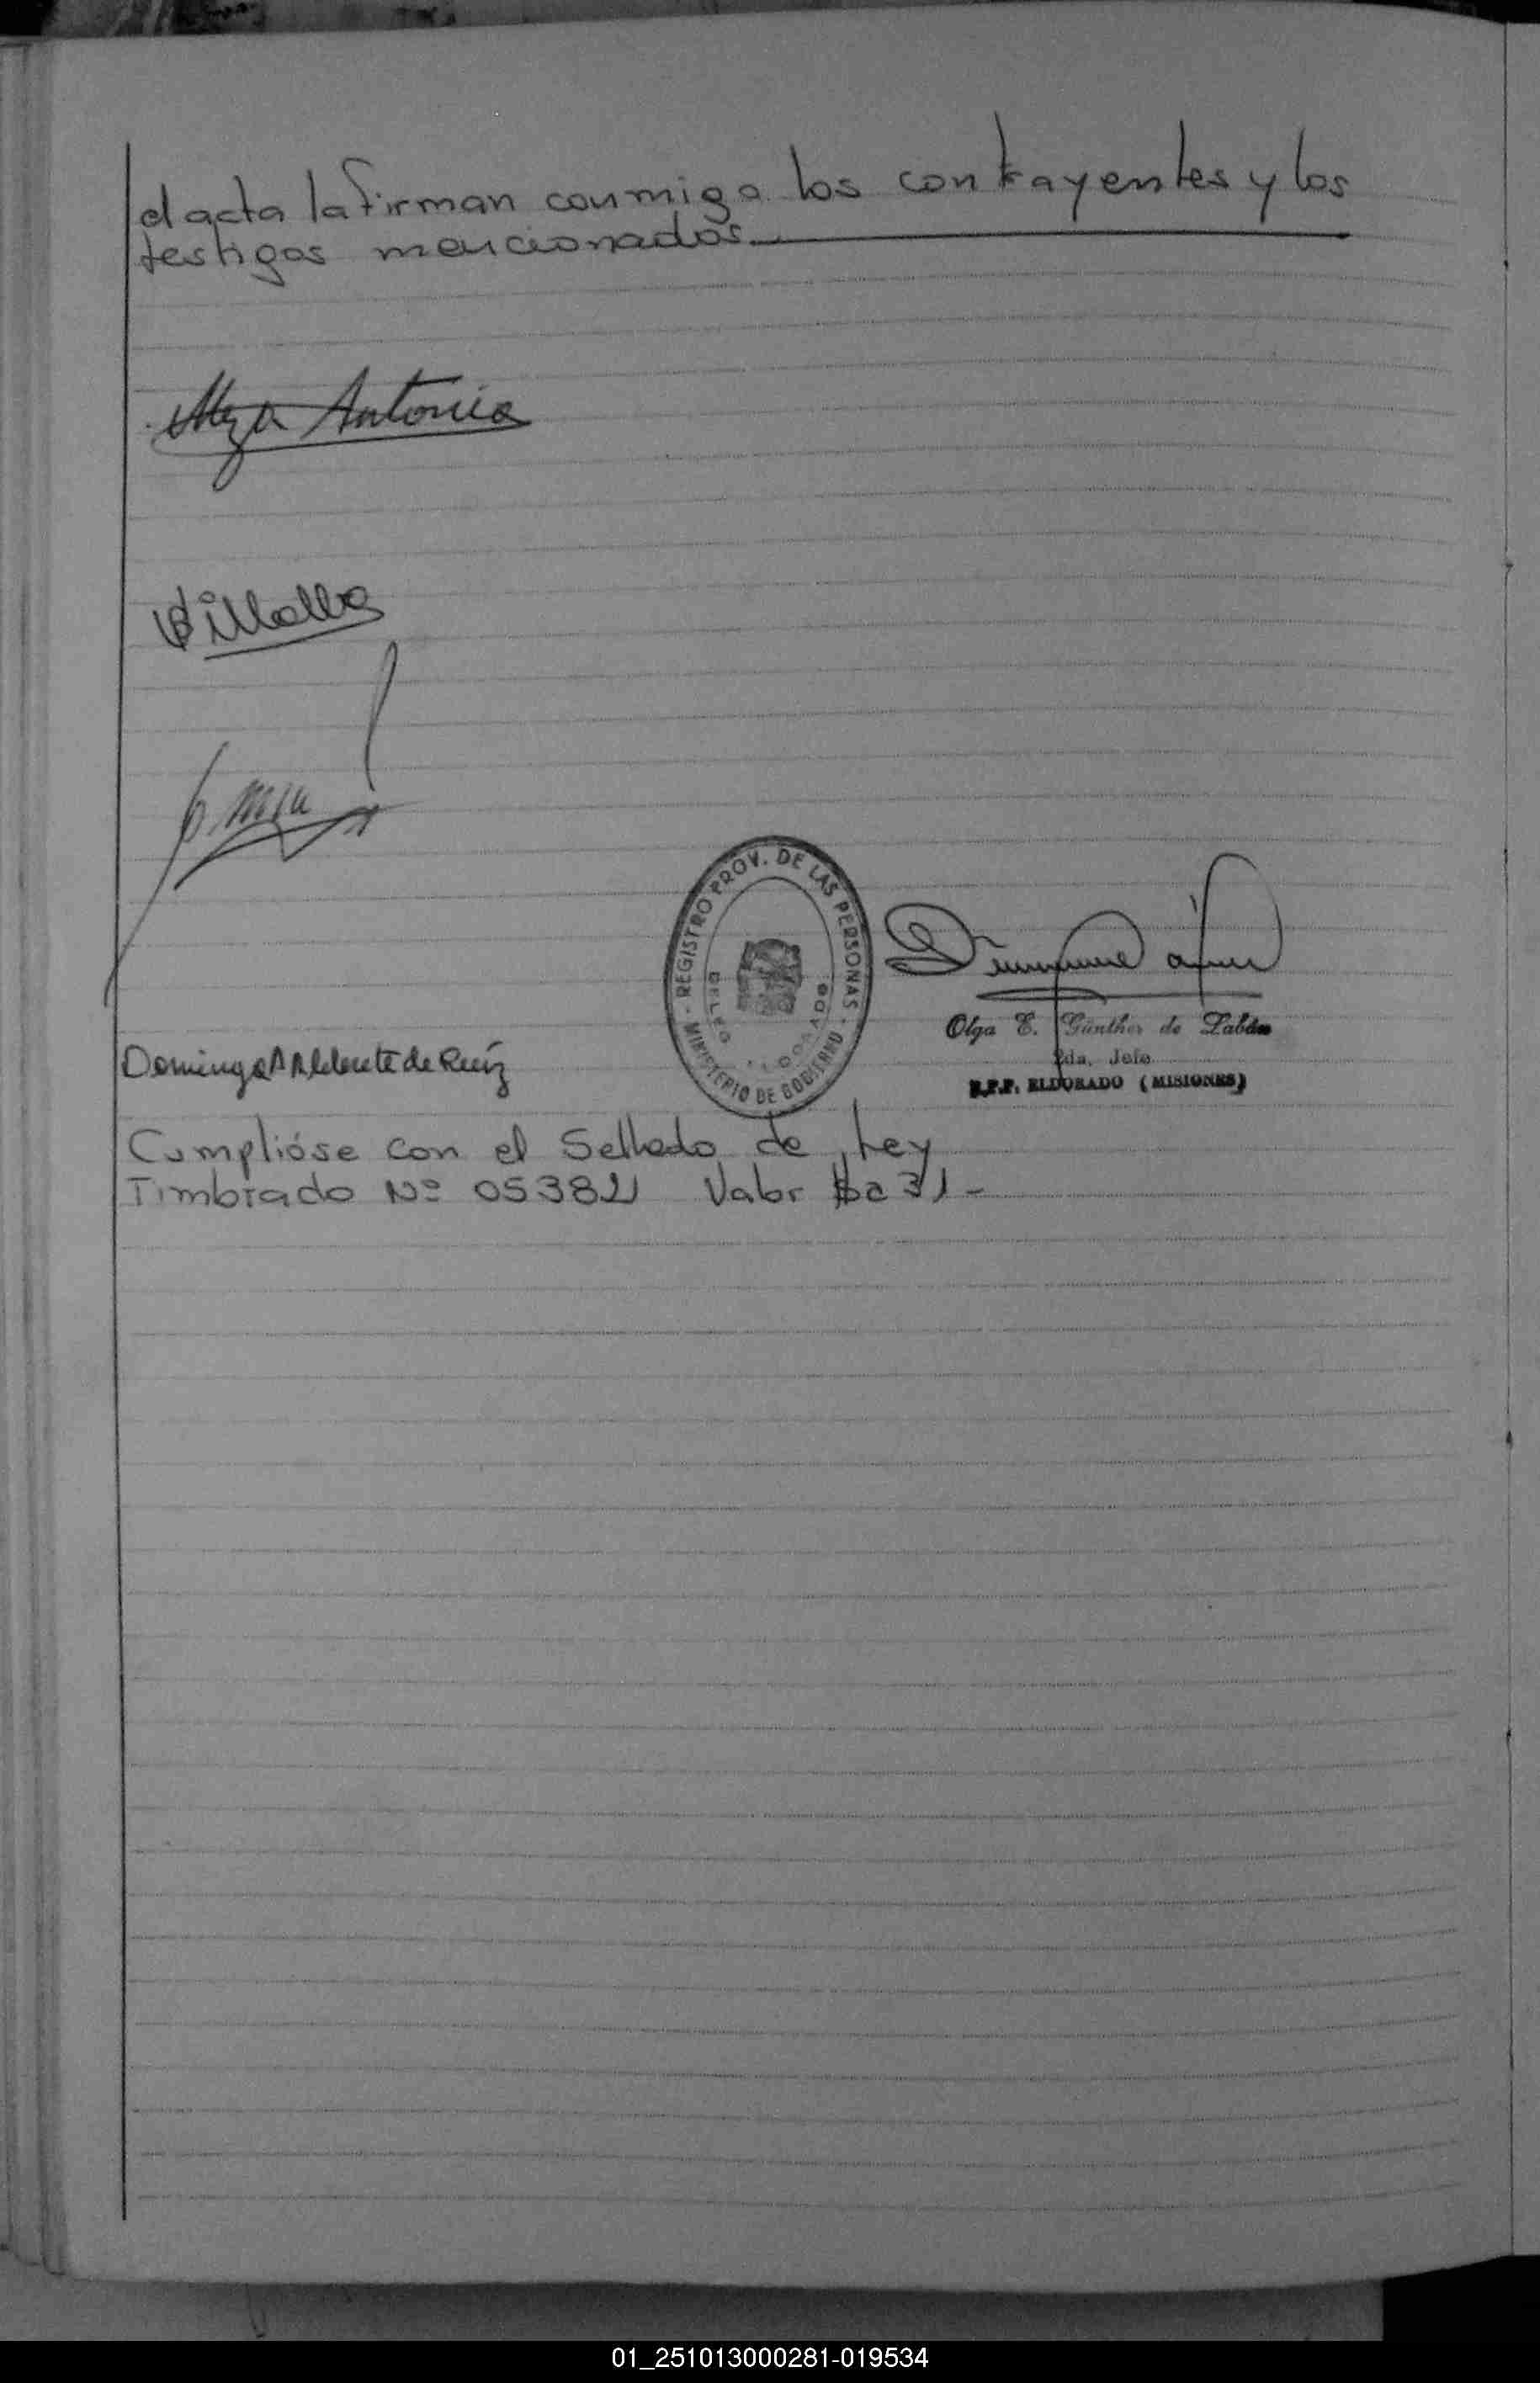 el acta la firman conmigo los contrayentes y los
testigos mencionados.
Meza Antonia
Villalba
REGISTRO PROV. DE LAS PERSONAS
DELEG. ELDORADO
MINISTERIO DE GOBIERNO
Olga E. Günther de
2da. Jefe
R.P.P. ELDORADO (MISIONES)
Dominga A de Ruíz
Cumplióse con el Sellado de Ley
Timbrado Nº Valor
01_251013000281-019534